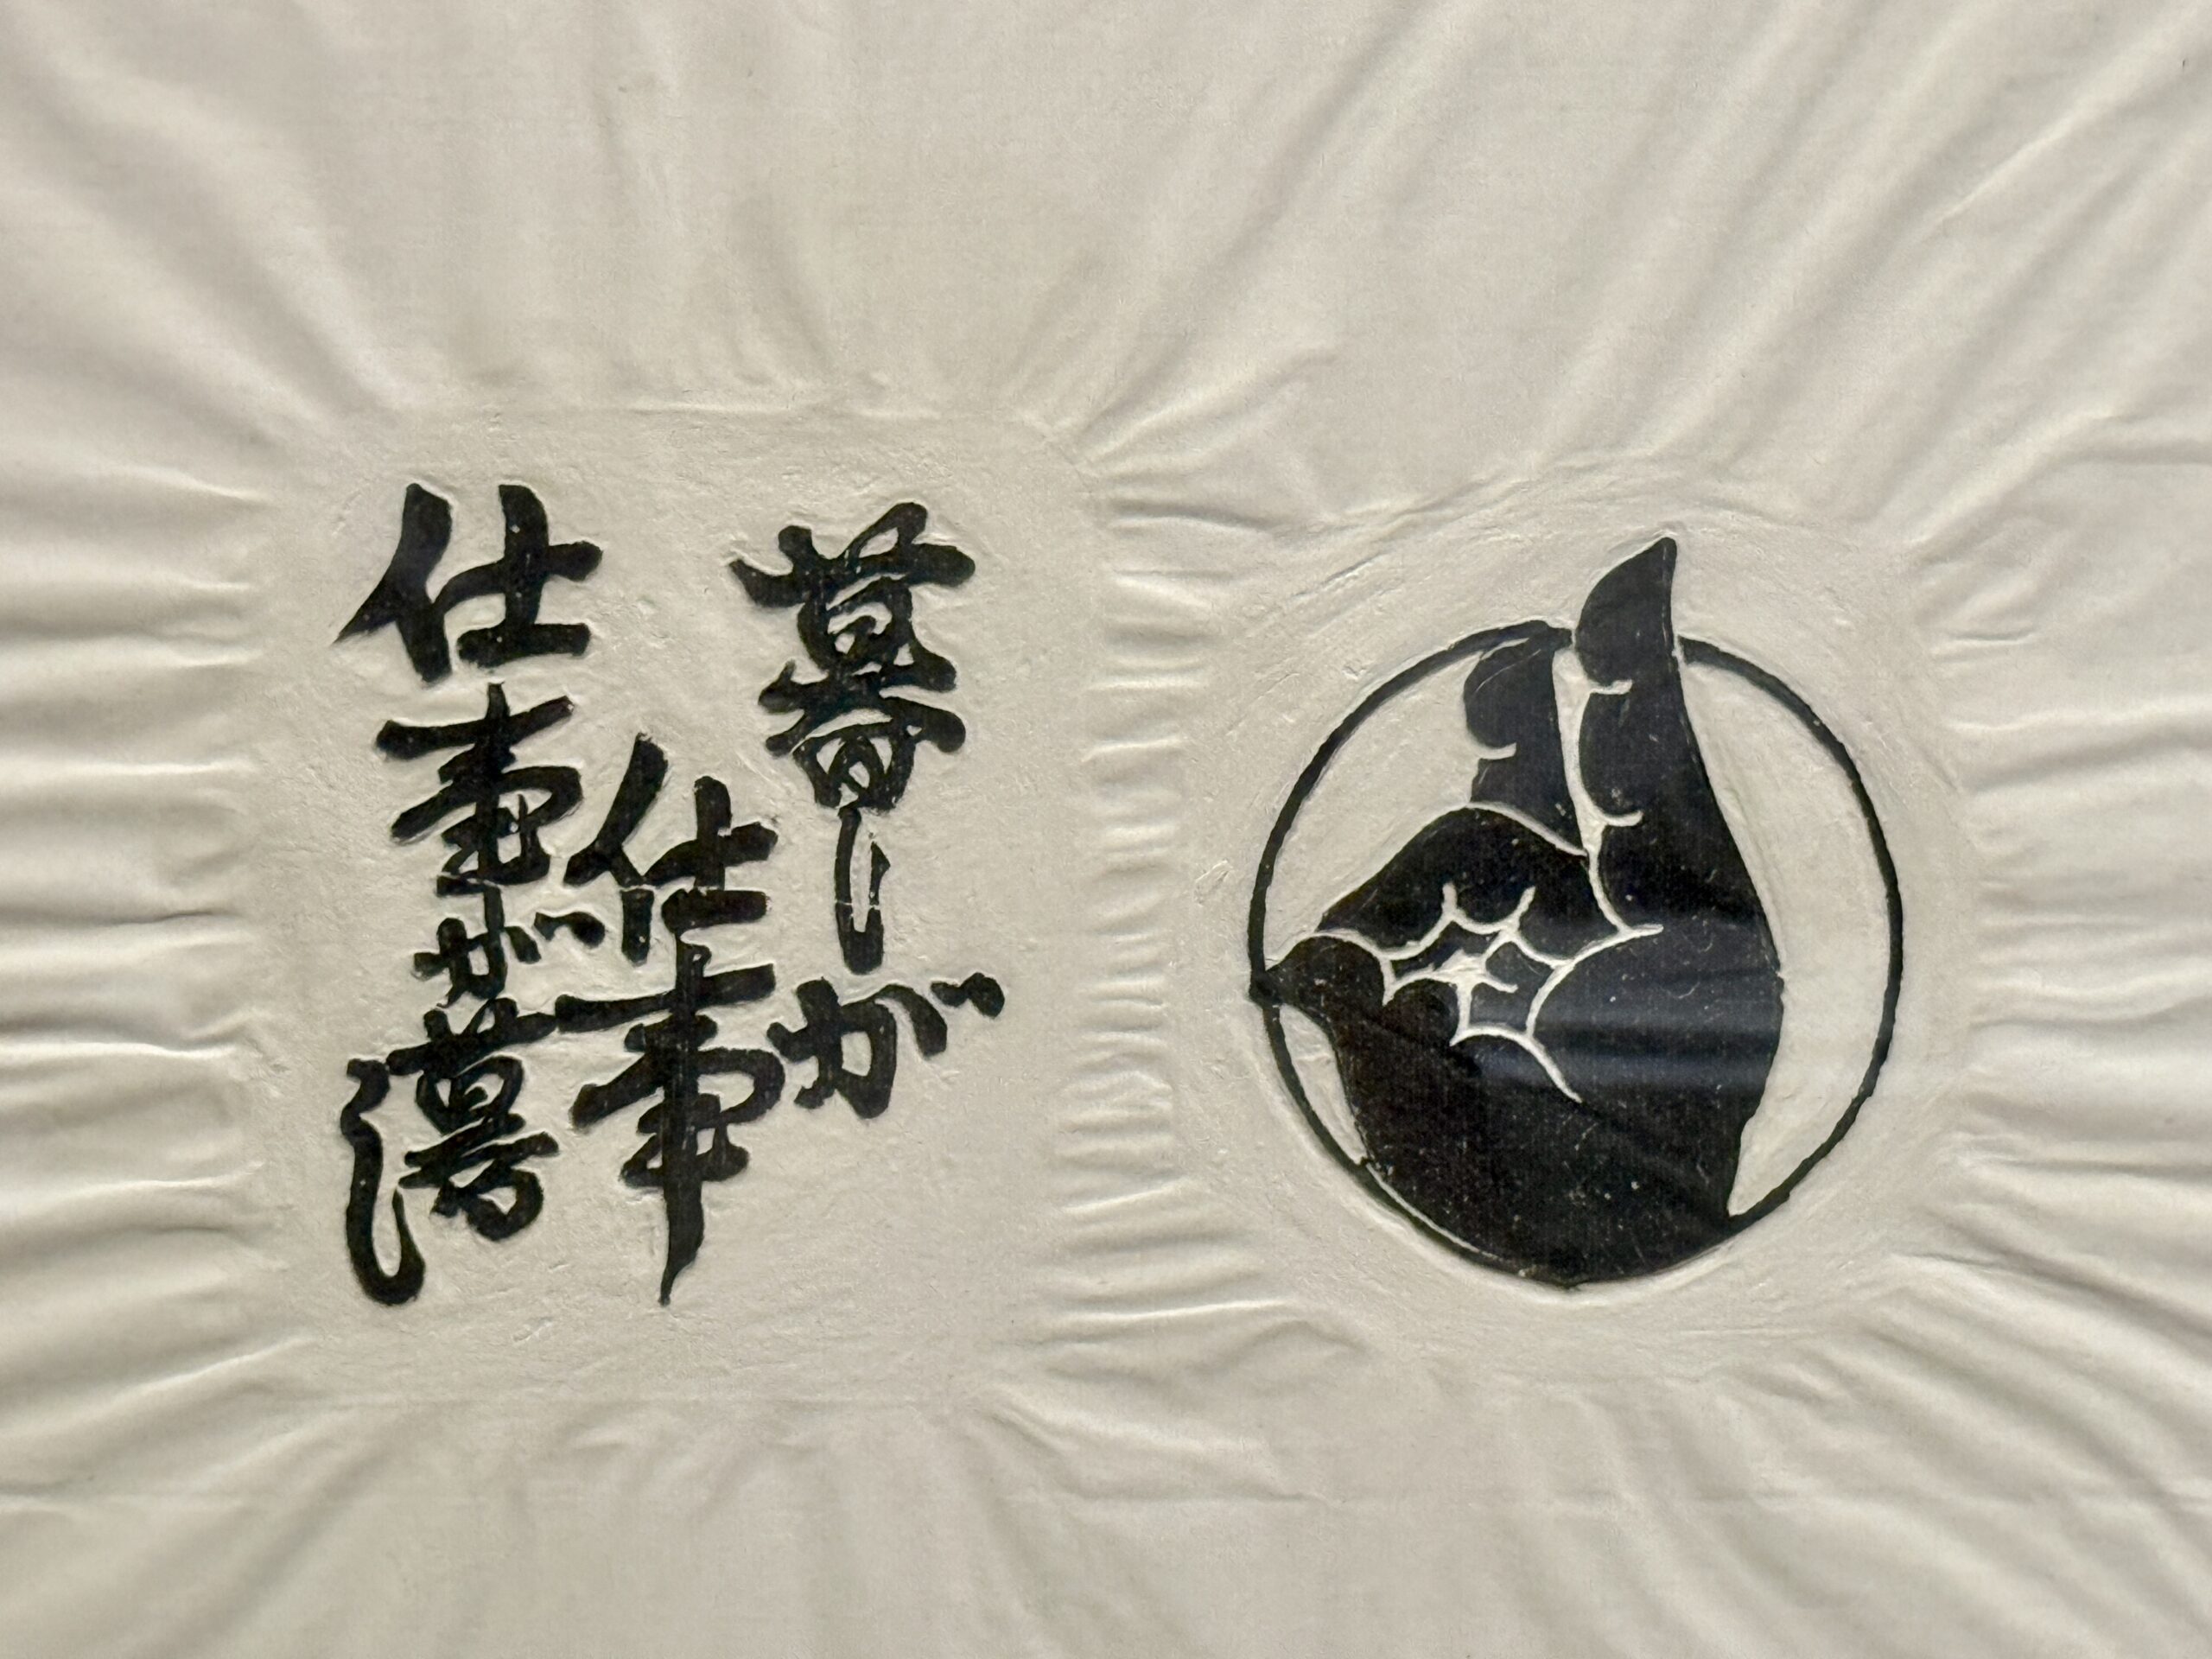 暮しが
仕事
仕事が暮し